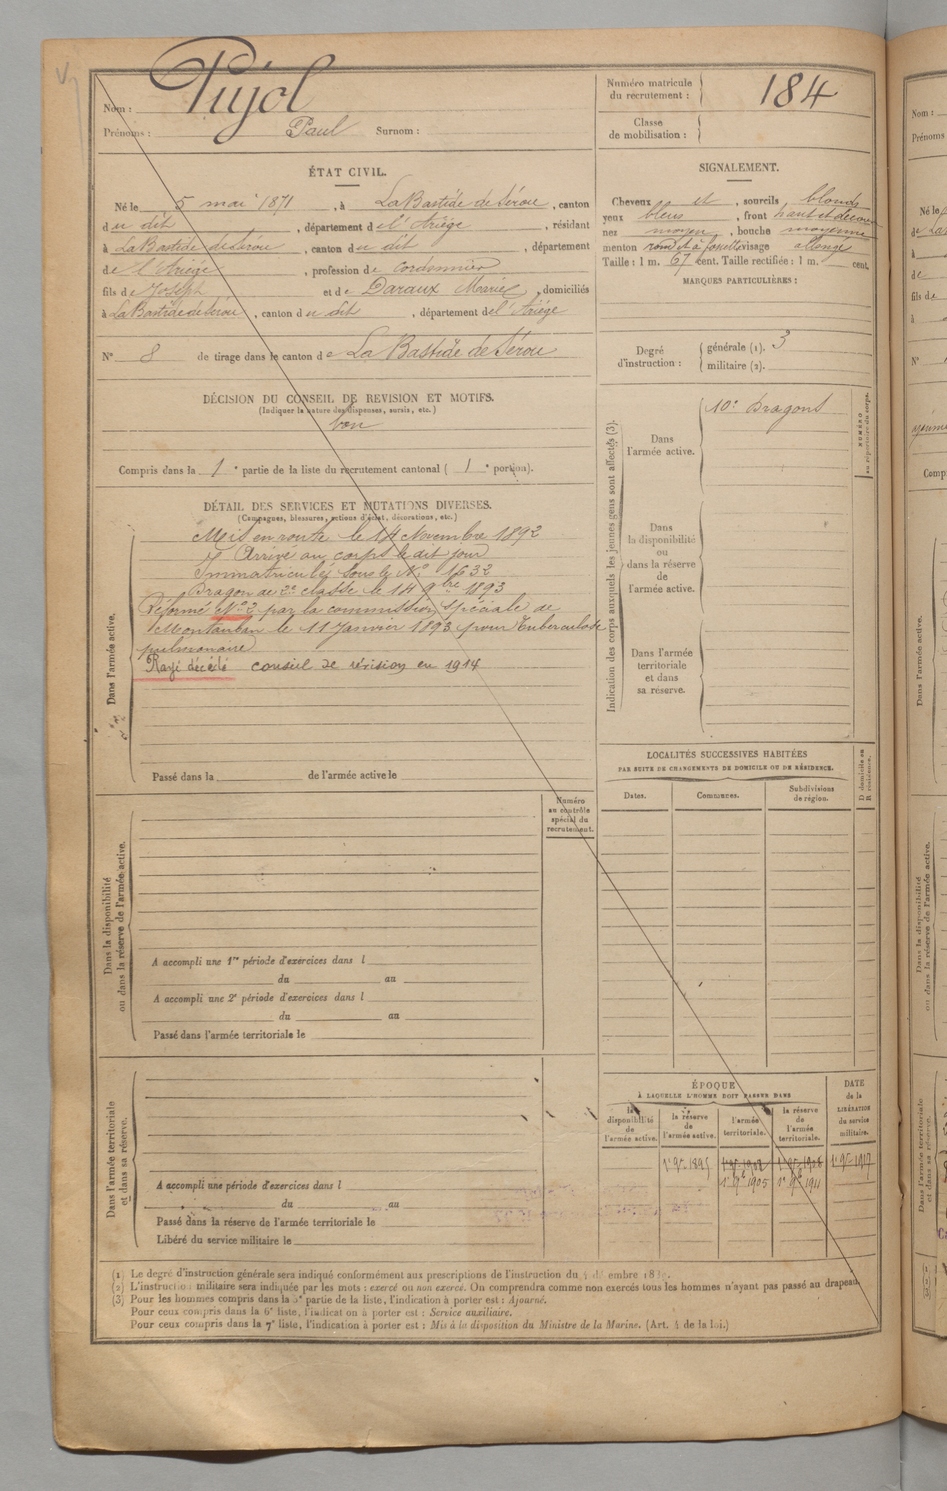 Nom : Pujol
Prénoms : Paul Surnom :
Numéro matricule
du recrutement : 184
Classe
de mobilisation :
ÉTAT CIVIL.
Né le 5 mai 1871, à La Bastide de Sérou, canton
du dit, département de l'Ariège, résidant
à La Bastide de Sérou, canton du dit, département
de l'Ariège, profession de cordonnier
fils de Joseph et de Daraux Marie, domiciliés
à La Bastide de Sérou, canton du dit, département de l'Ariège
N° 8 de tirage dans le canton de La Bastide de Sérou
SIGNALEMENT.
Cheveux et, sourcils blonds
yeux bleus, front haut et découv
nez moyen, bouche moyenne
menton rond et à fossette visage allongé
Taille : 1 m. 67 cent. Taille rectifiée : 1 m. cent.
MARQUES PARTICULIÈRES :
Degré
d'instruction :
générale (1). 3
militaire (2).
DÉCISION DU CONSEIL DE REVISION ET MOTIFS.
(Indiquer la nature des dispenses, sursis, etc.)
bon
Compris dans la 1e partie de la liste du recrutement cantonal ( 1e portion).
DÉTAIL DES SERVICES ET MUTATIONS DIVERSES.
(Campagnes, blessures, actions d'éclat, décorations, etc.)
Dans l'armée active.
Mis en route le 14 Novembre 1892
Arrivé au corps le dit jour
Immatriculé sous le N° 1632
Dragon de 2e classe le 14 9bre 1893
Réformé N° 2 par la commission spéciale de
Montauban le 11 Janvier 1893 pour Tuberculose
pulmonaire
Rayé décédé conseil de révision en 1914
Passé dans la de l'armée active le
Indication des corps auxquels les jeunes gens sont affectés (3).
Dans
l'armée active.
10e Dragons
NUMÉRO
au répertoire du corps.
Dans
la disponibilité
ou
dans la réserve
de
l'armée active.
Dans l'armée
territoriale
et dans
sa réserve.
LOCALITÉS SUCCESSIVES HABITÉES
PAR SUITE DE CHANGEMENTS DE DOMICILE OU DE RÉSIDENCE.
Dates.
Communes.
Subdivisions
de région.
D domicile ou
R résidence.
Numéro
au contrôle
spécial du
recrutement.
Dans la disponibilité
ou dans la réserve de l'armée active.
A accompli une 1re période d'exercices dans l
du au
A accompli une 2e période d'exercices dans l
du au
Passé dans l'armée territoriale le
Dans l'armée territoriale
et dans sa réserve.
A accompli une période d'exercices dans l
du au
Passé dans la réserve de l'armée territoriale le
Libéré du service militaire le
ÉPOQUE
À LAQUELLE L'HOMME DOIT PASSER DANS
la
disponibilité
de
l'armée active.
la réserve
de
l'armée active.
l'armée
territoriale.
la réserve
de
l'armée
territoriale.
DATE
de la
LIBÉRATION
du service
militaire.
1er 9bre 1895 1er 9bre 1902 1er 9bre 1908 1er 9bre 1917
1er 9bre 1905 1er 9bre 1911
(1) Le degré d'instruction générale sera indiqué conformément aux prescriptions de l'instruction du
(2) L'instruction militaire sera indiquée par les mots : exercé ou non exercé. On comprendra comme non exercés tous les hommes n'ayant pas passé au drapeau.
(3) Pour les hommes compris dans la 5e partie de la liste, l'indication à porter est : Ajourné.
Pour ceux compris dans la 6e liste, l'indication à porter est : Service auxiliaire.
Pour ceux compris dans la 7e liste, l'indication à porter est : Mis à la disposition du Ministre de la Marine. (Art. 4 de la loi.)